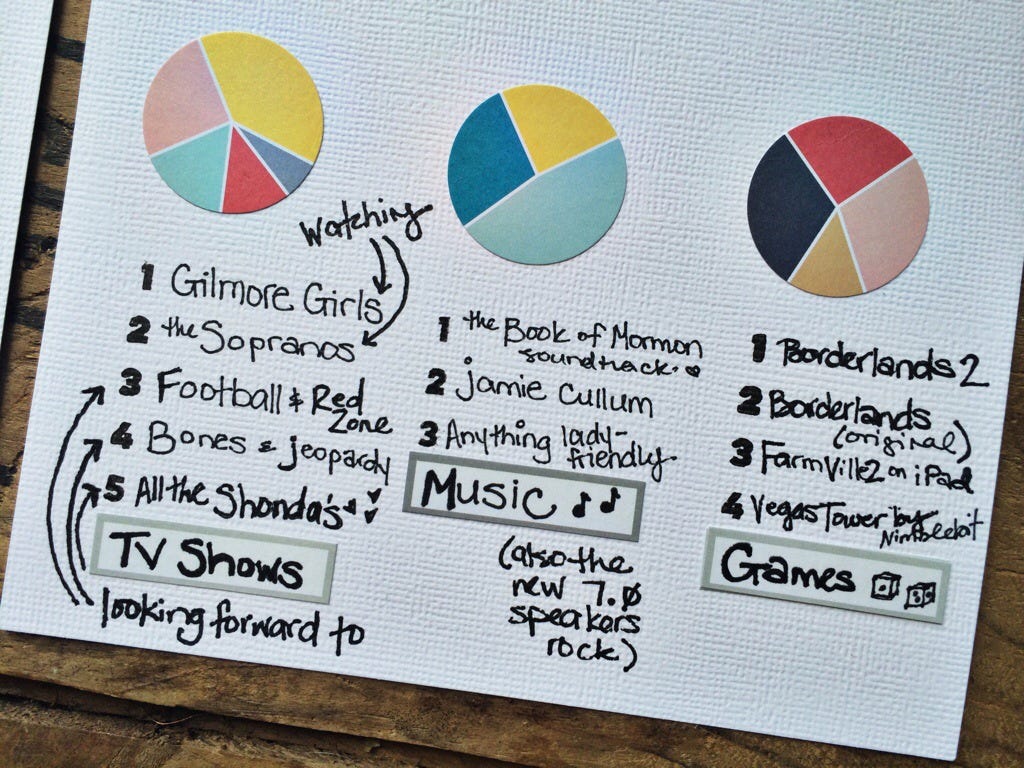 watching
1 Gilmore Girls
2 the Sopranos
3 Football & Red
Zone
4 Bones & Jeopardy
5 All the Shonda's
TV Shows
looking forward to
1 the Book of Mormon
soundtrack.
2 Jamie Cullum
3 Anything lady-
friendly
Music
(also the
new 7.0
speakars
rock)
1 Borderlands 2
2 Borderlands
(original)
3 FarmVille2 on iPad
4 VegasTower by
Nimblebit
Games